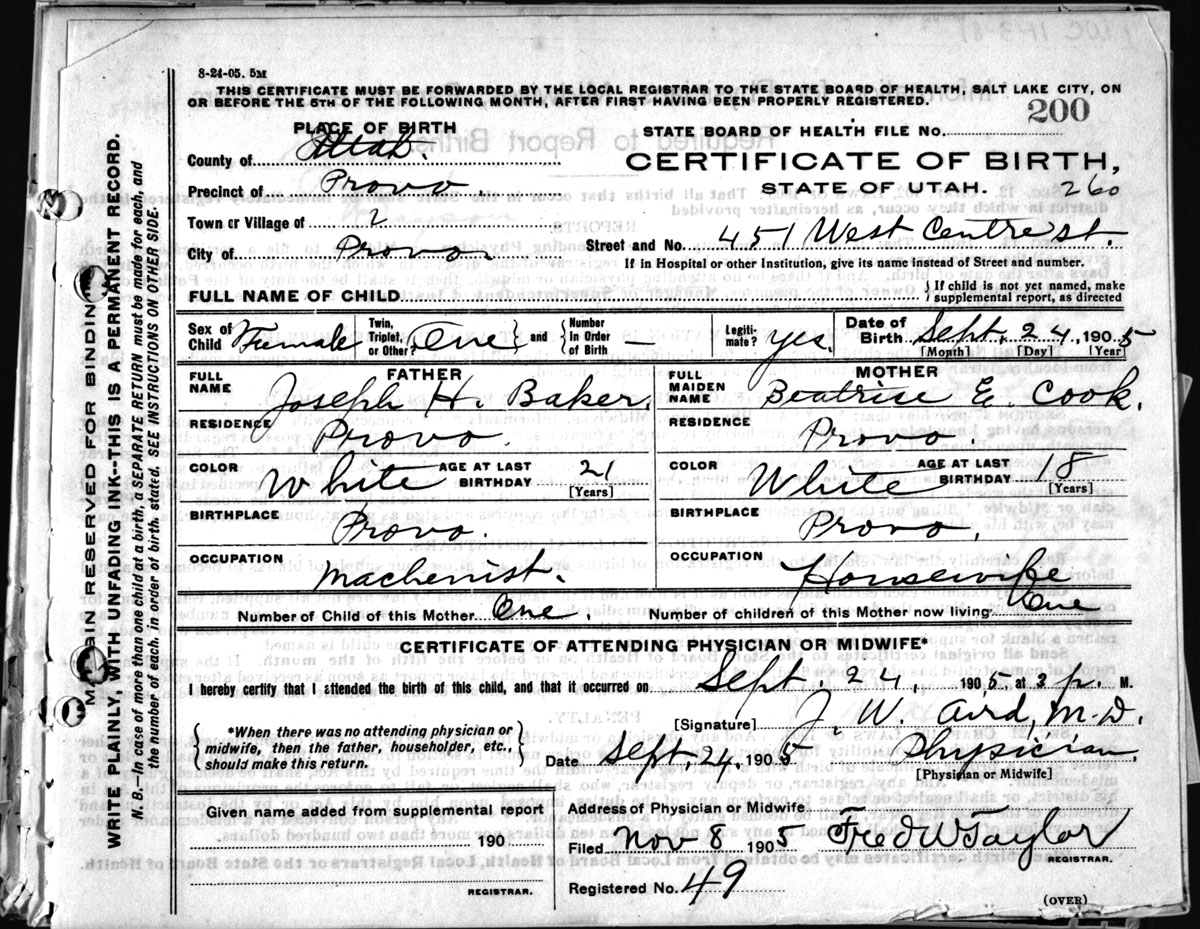 8-24-05. 5M
THIS CERTIFICATE MUST BE FORWARDED BY THE LOCAL REGISTRAR TO THE STATE BOARD OF HEALTH, SALT LAKE CITY, ON
OR BEFORE THE 5TH OF THE FOLLOWING MONTH, AFTER FIRST HAVING BEEN PROPERLY REGISTERED.
200
PLACE OF BIRTH
STATE BOARD OF HEALTH FILE No.
County of Utah.
CERTIFICATE OF BIRTH,
Precinct of Provo,
STATE OF UTAH. 260
Town or Village of 2
City of Provo
Street and No. 451 West Centre st.
If in Hospital or other Institution, give its name instead of Street and number.
FULL NAME OF CHILD
{ If child is not yet named, make
supplemental report, as directed
Sex of Child Female
Twin, Triplet, or Other? One } and { Number in Order of Birth —
Legitimate? yes.
Date of Birth Sept. 24, 1905
[Month] [Day] [Year]
FATHER
FULL NAME Joseph H. Baker.
RESIDENCE Provo.
COLOR White AGE AT LAST BIRTHDAY 21
[Years]
BIRTHPLACE Provo.
OCCUPATION Machenist.
MOTHER
FULL MAIDEN NAME Beatrise E. Cook.
RESIDENCE Provo.
COLOR White AGE AT LAST BIRTHDAY 18
[Years]
BIRTHPLACE Provo,
OCCUPATION Housewife
Number of Child of this Mother One
Number of children of this Mother now living One
CERTIFICATE OF ATTENDING PHYSICIAN OR MIDWIFE*
I hereby certify that I attended the birth of this child, and that it occurred on Sept. 24, 1905, at 3 p. M.
{ *When there was no attending physician or
midwife, then the father, householder, etc.,
should make this return. }
[Signature] J. W. Aird, M.D.
Date Sept. 24, 1905 Physician
[Physician or Midwife]
Given name added from supplemental report
190
REGISTRAR.
Address of Physician or Midwife
Filed Nov 8 1905 Fred W Taylor
REGISTRAR.
Registered No. 49
(OVER)
MARGIN RESERVED FOR BINDING
WRITE PLAINLY, WITH UNFADING INK--THIS IS A PERMANENT RECORD.
N. B.--In case of more than one child at a birth, a SEPARATE RETURN must be made for each, and
the number of each, in order of birth, stated. SEE INSTRUCTIONS ON OTHER SIDE.